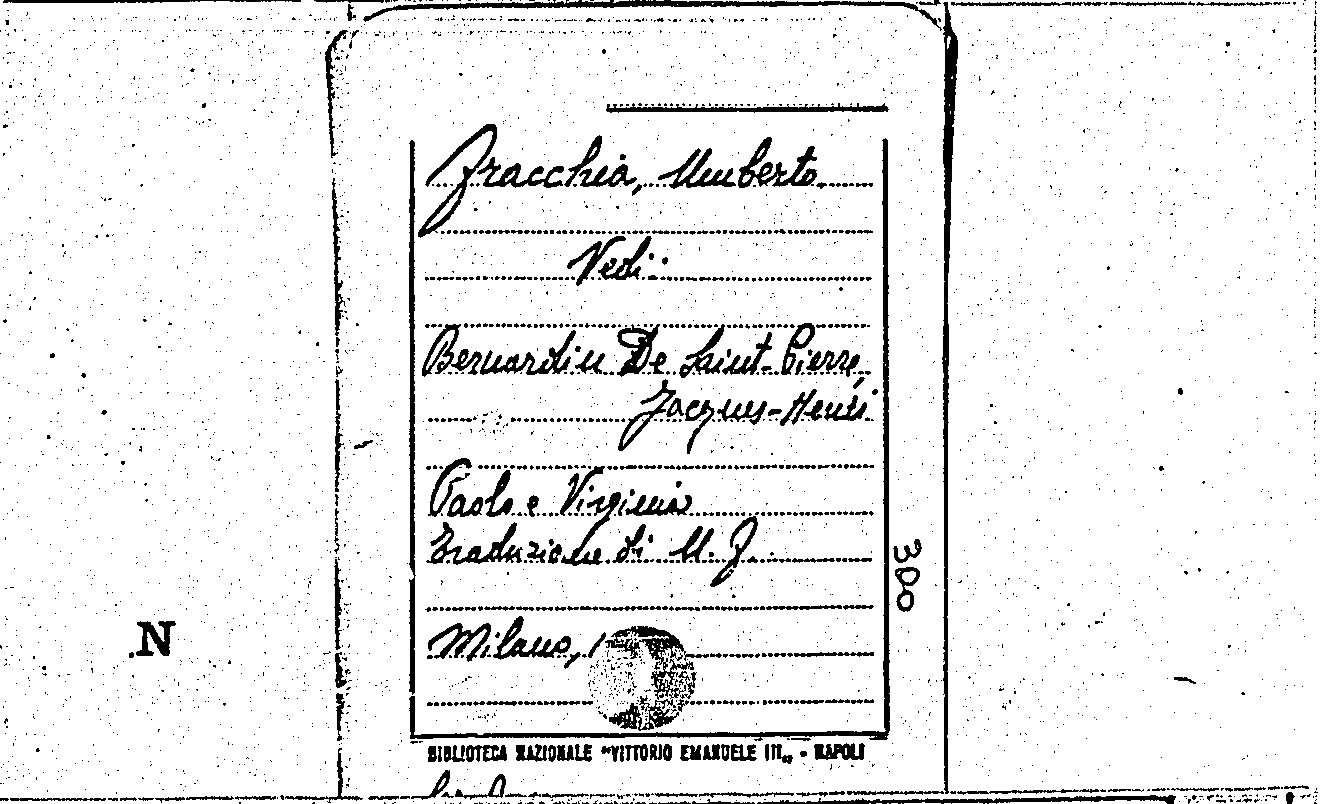 Fracchia, Umberto.
Vedi:
Bernardin De Saint-Pierre,
Jacques-Henri
Paolo e Virginia
Traduzione di U. F.
300
N
Milano,
BIBLIOTECA NAZIONALE "VITTORIO EMANUELE III„ - NAPOLI